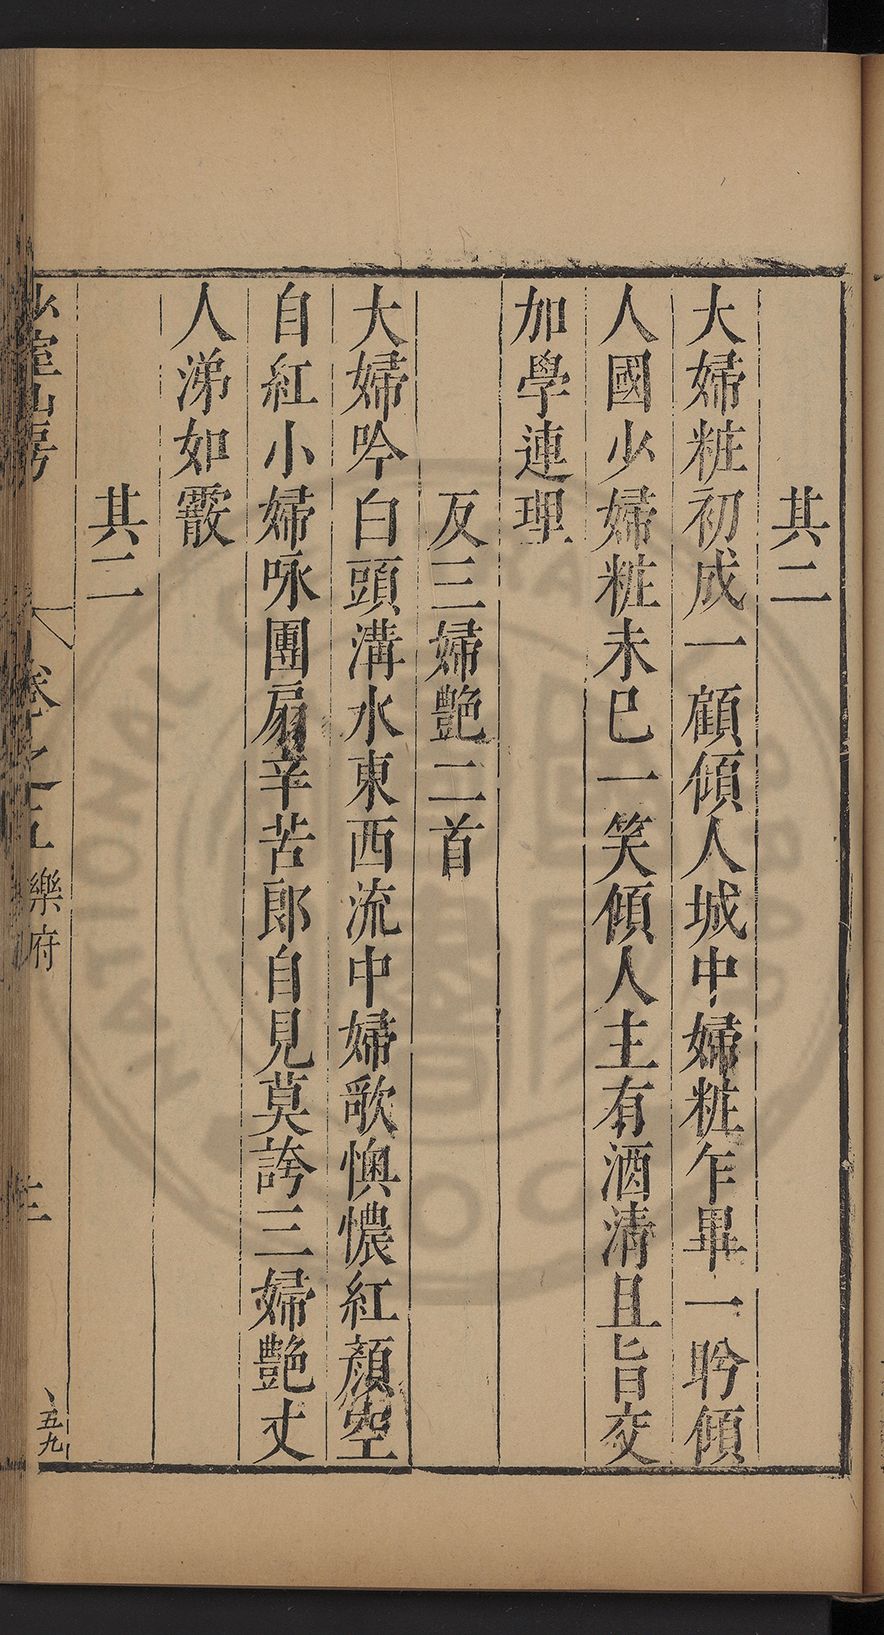 其二
大婦粧初成一顧傾人城中婦粧乍畢一盻傾
人國少婦粧未已一笑傾人主有酒清且旨交
加學連理
反三婦艶二首
大婦吟白頭溝水東西流中婦歌懊憹紅顏空
自紅小婦咏團扇辛苦郎自見莫誇三婦艶丈
人涕如霰
其二
少室山房
樂府
五九